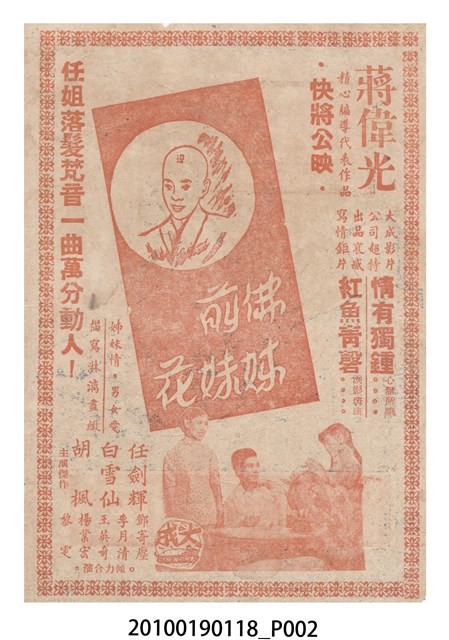 蔣偉光
精心編導代表作品
·快將公映·
大成影片
公司超特
出品哀感
寫情鉅片
情有獨鍾
紅魚青磬
佛前
姊妹花
任姐落髮梵音一曲萬分動人！
姊妹情·男女愛
描寫淋漓盡緻
任劍輝
白雪仙
胡楓
主演傑作
鄭寄塵
李月清
王英奇
楊業宏
黎雯
·傾力合演·
大成
20100190118_P002